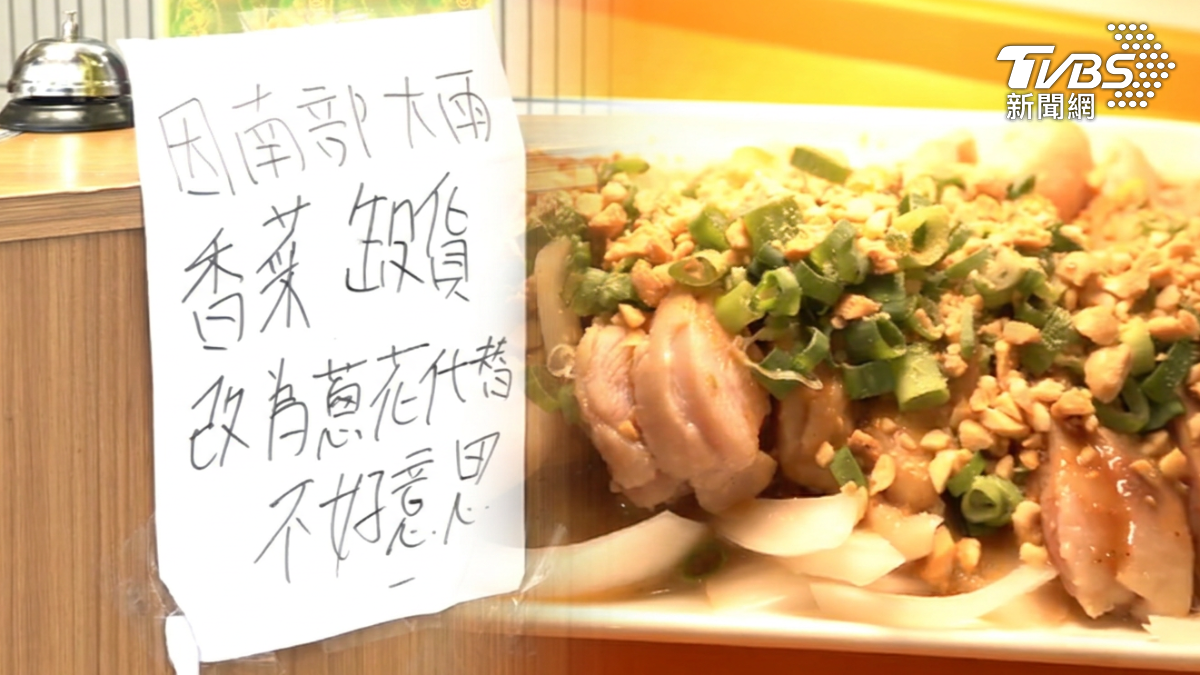 因南部大雨
香菜 缺貨
改為蔥花代替
不好意思
TVBS
新聞網